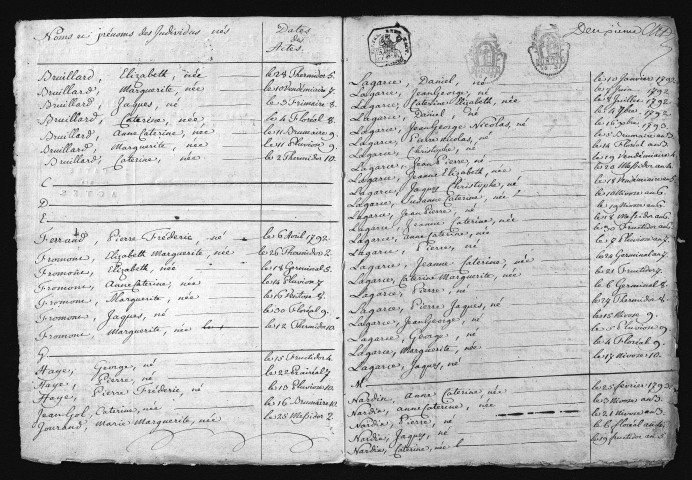 Noms et prénoms des Individus nés
Dates des Actes.
Bruillard, Elizabeth, née le 28 Thermidor 5.
Bruillard, Marguerite, née le 10 Vendémiaire 7.
Bruillard, Jaques, né le 5 Frimaire 8.
Bruillard, Caterine, née le 4 Floréal 8.
Bruillard, Anne Caterine, née le 11 Brumaire 9.
Bruillard, Marguerite, née le 11 Pluviose 9.
Bruillard, Caterine, née le 2 Thermidor 10.
C
D
E
Ferrand, Pierre Fréderic, né le 6 Avril 1792
Fromont, Elizabeth Marguerite, née le 26 Thermidor 2.
Fromont, Elizabeth, née le 14 Germinal 5.
Fromont, Anne Caterine, née le 14 Pluviose 7.
Fromont, Marguerite, née le 10 Ventose 8.
Fromont, Jaques, né le 30 Floréal 9.
Fromont, Marguerite, née le 12 Thermidor 10.
G
Haye, George, né le 15 Fructidor 4.
Haye, Pierre, né le 22 Prairéal 7.
Haye, Pierre Fréderic, né le 13 Pluviose 10.
Jean Gol, Caterine, née le 16 Brumaire 10.
Jourand, Marie Marguerite, née le 25 Messidor 2.
Deuxieme
Lagarce, Daniel, né le 10 Janvier 1792
Lagarce, Jean George, né le 7 Juin 1792
Lagarce, Caterine Elizabeth, née le 8 Juillet 1792
Lagarce, Daniel, né le 4 7bre 1792
Lagarce, Jean George Nicolas, né le 16 Xbre 1793
Lagarce, Pierre Nicolas, né le 5 Brumaire an 3.
Lagarce, Christophe, né le 14 Floréal an 3.
Lagarce, Jean Pierre, né le 19 Vendémiaire an 4
Lagarce, Jeanne Elizabeth, née
Lagarce, Jaques Christophe, né
Lagarce, Susanne Caterine, née
Lagarce, Jean Pierre, né
Lagarce, Jeanne Caterine, née
Lagarce, Anne Caterine, née
Lagarce, Pierre, né
Lagarce, Jeanne Caterine, née le 24 Germinal an 7
Lagarce, Caterine Marguerite, née le 21 Fructidor 7.
Lagarce, Pierre, né le 6 Germinal 8
Lagarce, Pierre Jaques, né le 29 Thermidor 8.
Lagarce, Jean George, né le 15 Nivose 9.
Lagarce, George, né le 5 Pluviose 9.
Lagarce, Marguerite, née le 4 Floréal 9
Lagarce, Jaques, né le 17 Nivose 10.
M
Nardin, Anne Caterine, née le 25 février 1793
Nardin, Anne Caterine, née le 3 Nivose an 3.
Nardin, Pierre, né le 21 Nivose an 3.
Nardin, Jaques, né le 6 floréal an 4
Nardin, Caterine, née le 19 fructidor an 5.